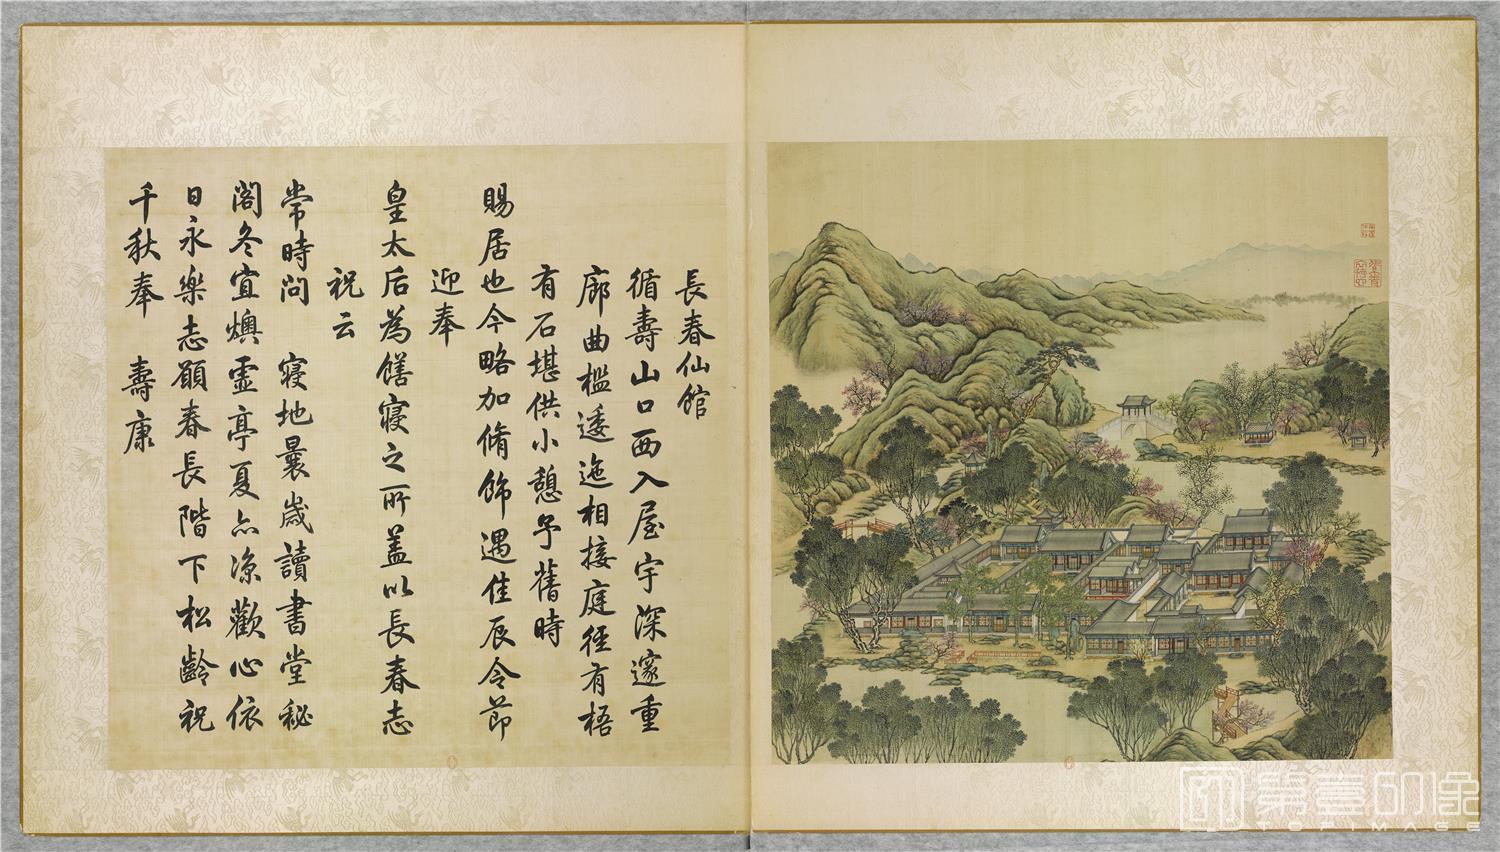 長春仙館
循壽山口西入屋宇深邃重
廊曲檻逶迤相接庭徑有梧
有石堪供小憩予舊時
賜居也今略加脩飾遇佳辰令節
迎奉
皇太后為膳寢之所蓋以長春志
祝云
常時問　寢地曩歲讀書堂秘
閣冬宜燠虛亭夏亦涼歡心依
日永樂志願春長階下松齡祝
千秋奉　壽康
第壹印像
TOPIMAGE